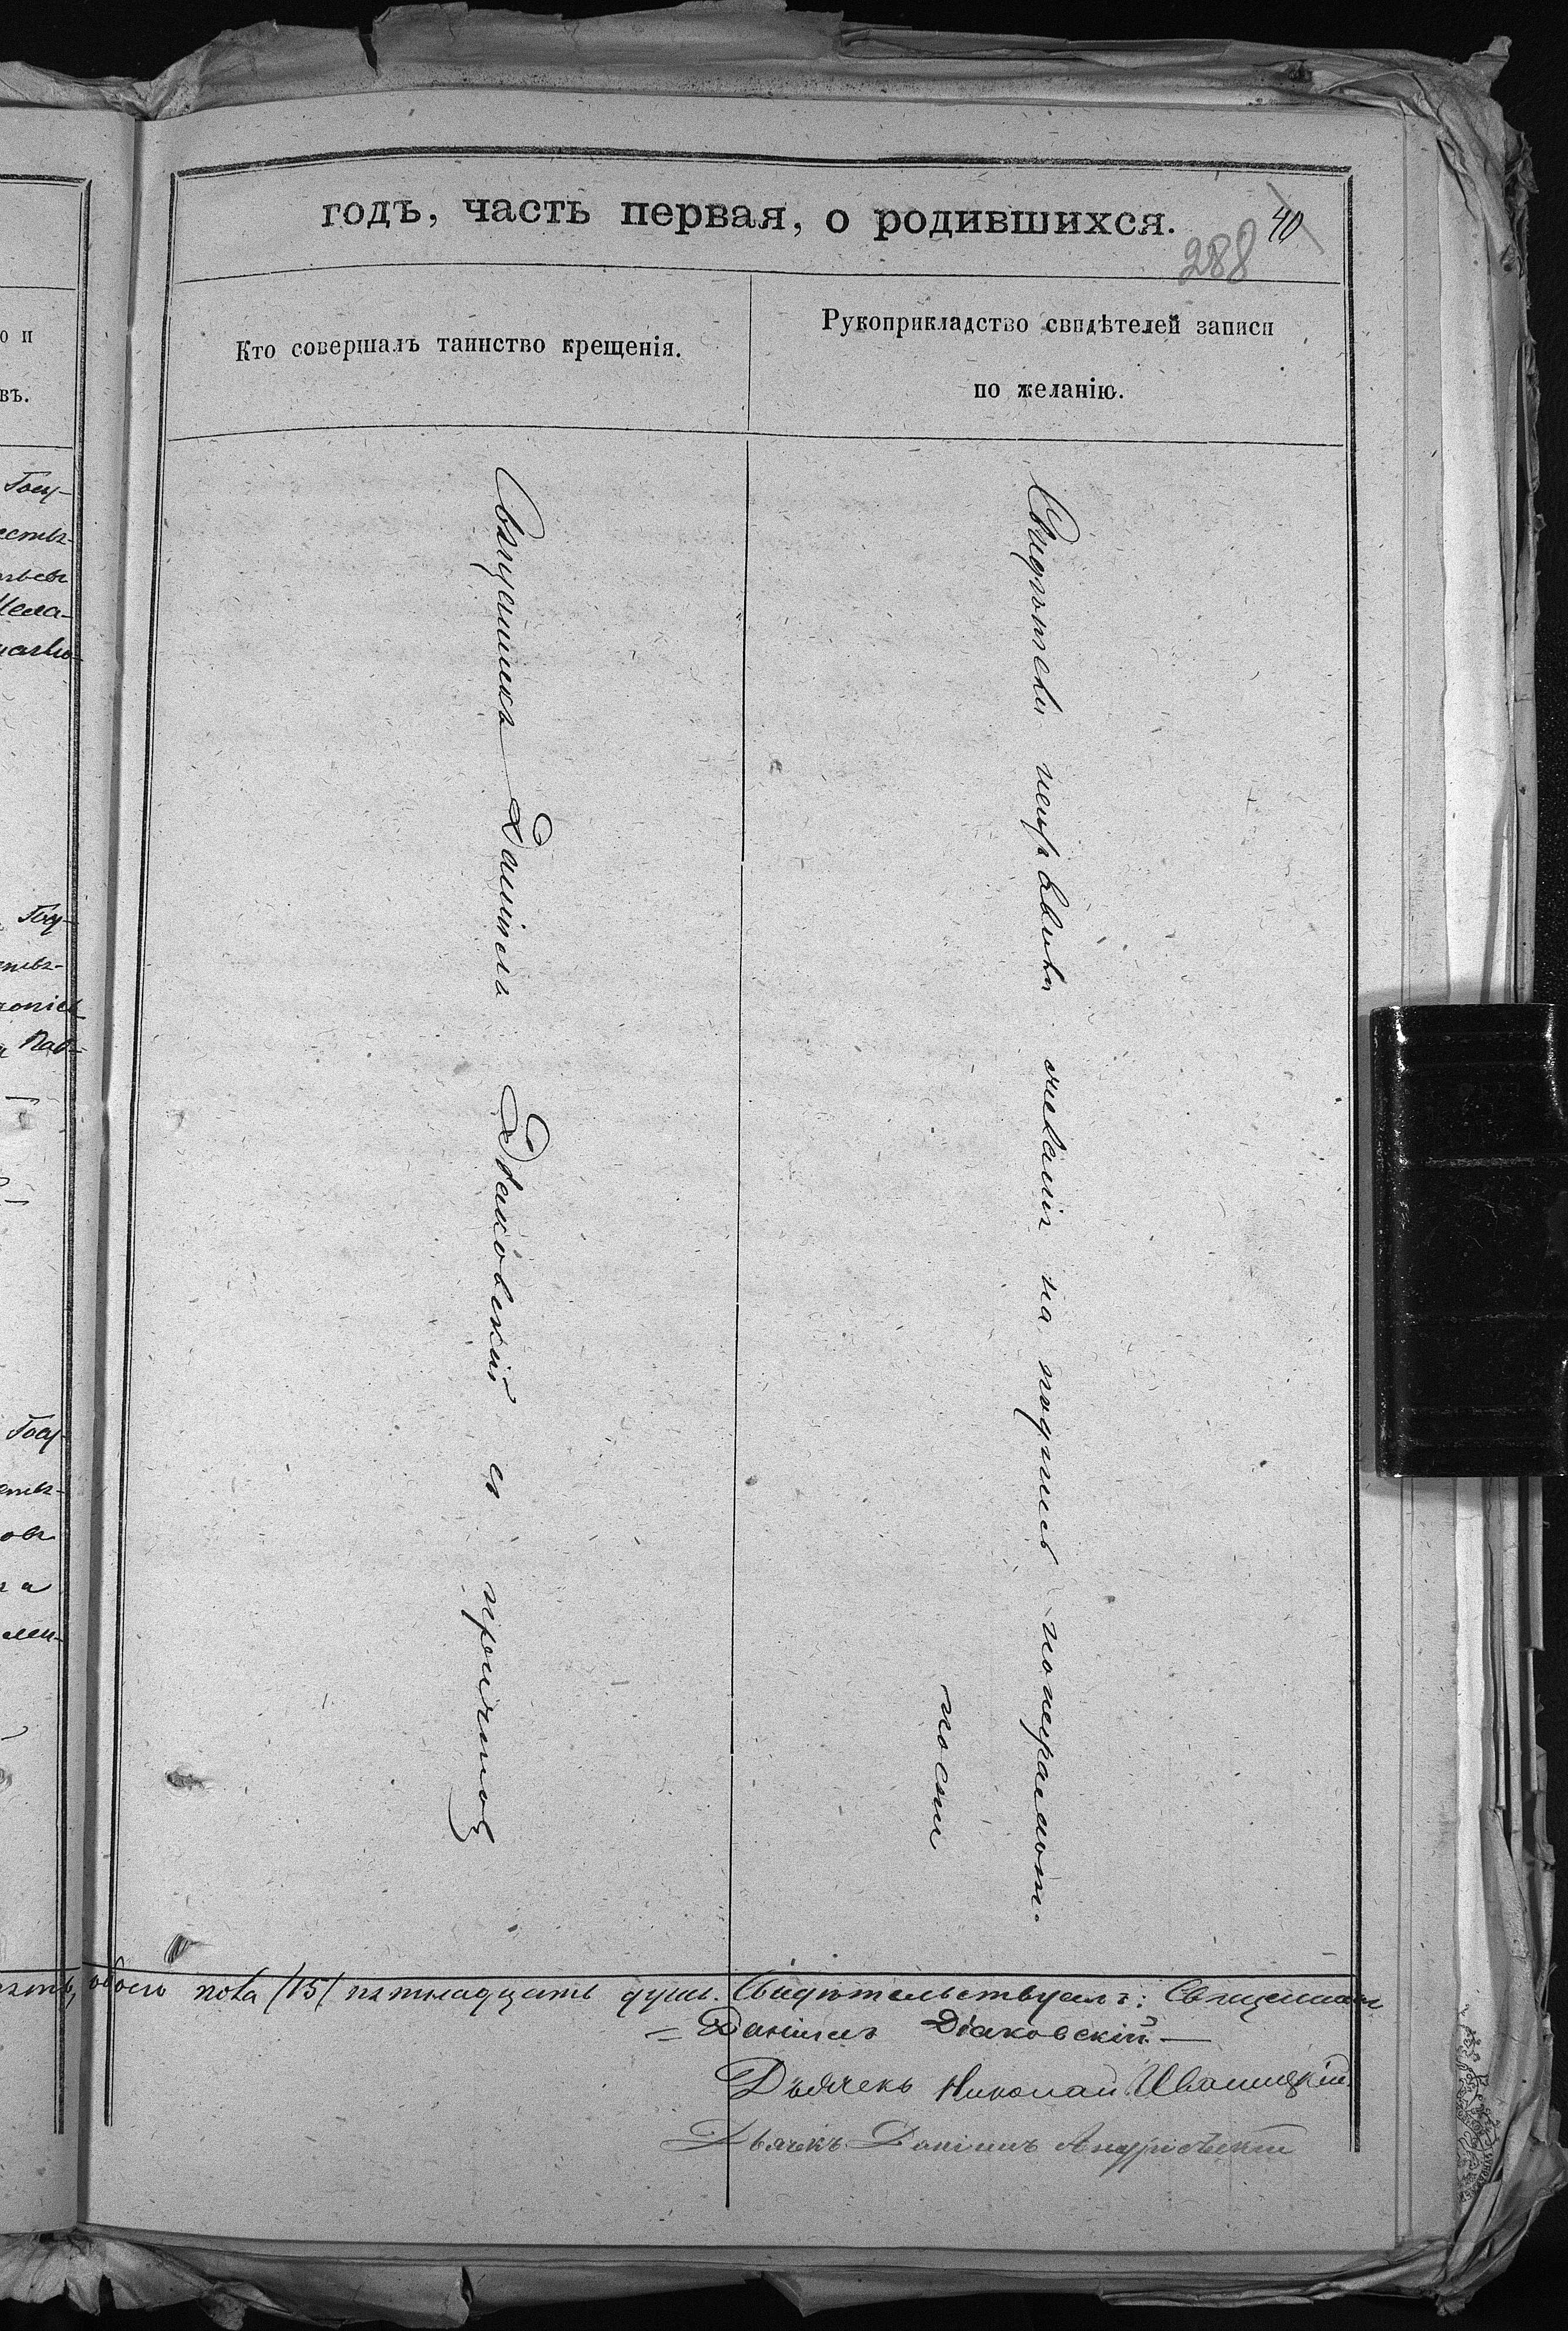 годъ, часть первая, о родившихся.
40
288
Кто совершалъ таинство крещенія.
Рукоприкладство свидѣтелей записи
по желанію.
о и
въ.
Госу-
Госу-
Пав-
Госу-
Священникъ Даніилъ Діаковскій съ причтомъ
Свидѣтели неизъявили желанія на подпись по неграмот-
ности
обоего пола /15/ пятнадцать душъ. Свидѣтельствуемъ: Священникъ
= Даніилъ Діаковскій —
Дьячекъ Николай Иваницкій
Дьячекъ Даніилъ Андріевскій